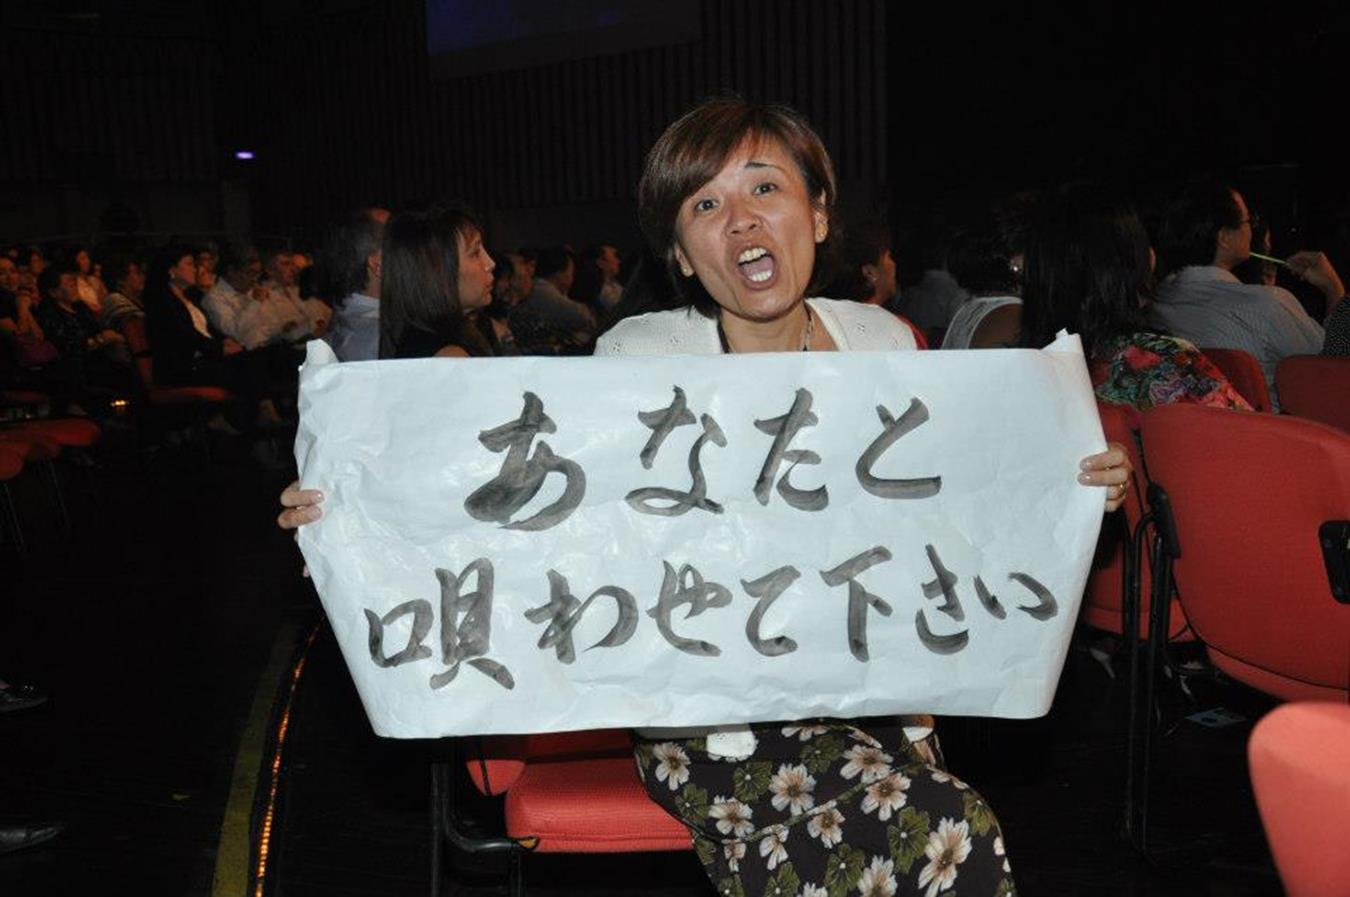 あなたと
唄わせて下さい